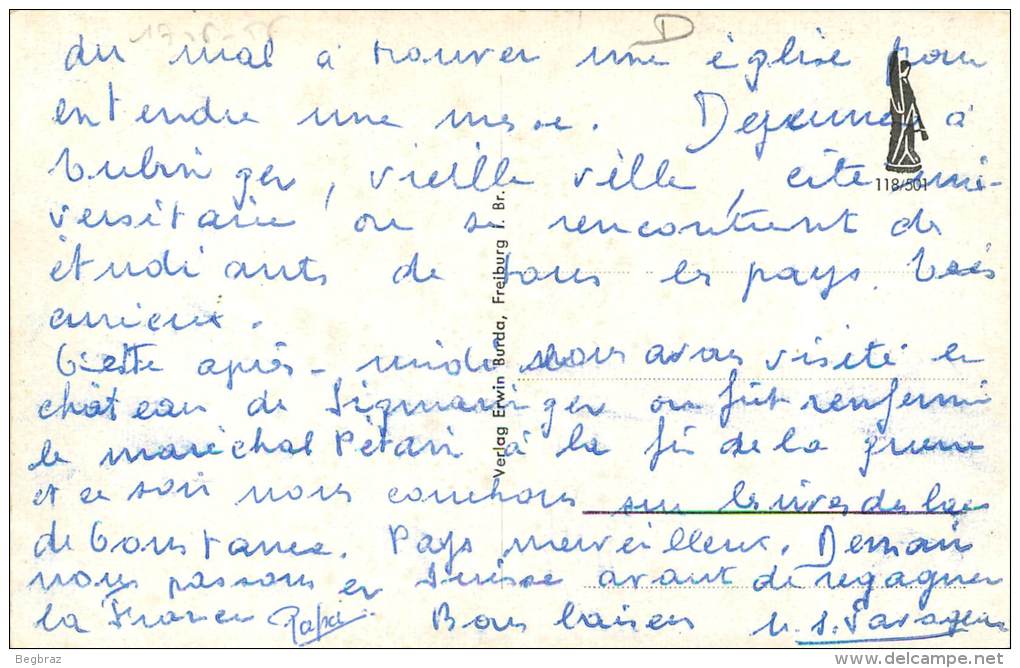 D
du mal à trouver une église pour
entendre une messe. Dejeuner à
Tubinger, vieille ville, cité uni-
118/501
versitaire ou se rencontrent des
étudiants de tous les pays. Très
curieux.
Cette après-midi nous avons visité le
château de Sigmaringen ou fut renfermé
le maréchal Pétain à la fin de la guerre
et ce soir nous couchons sur les rives du lac
de Constance. Pays merveilleux. Demain
nous passons en Suisse avant de regagner
la France Papa Bons baisers
Verlag Erwin Burda, Freiburg i. Br.
Begbraz
delcampe.net